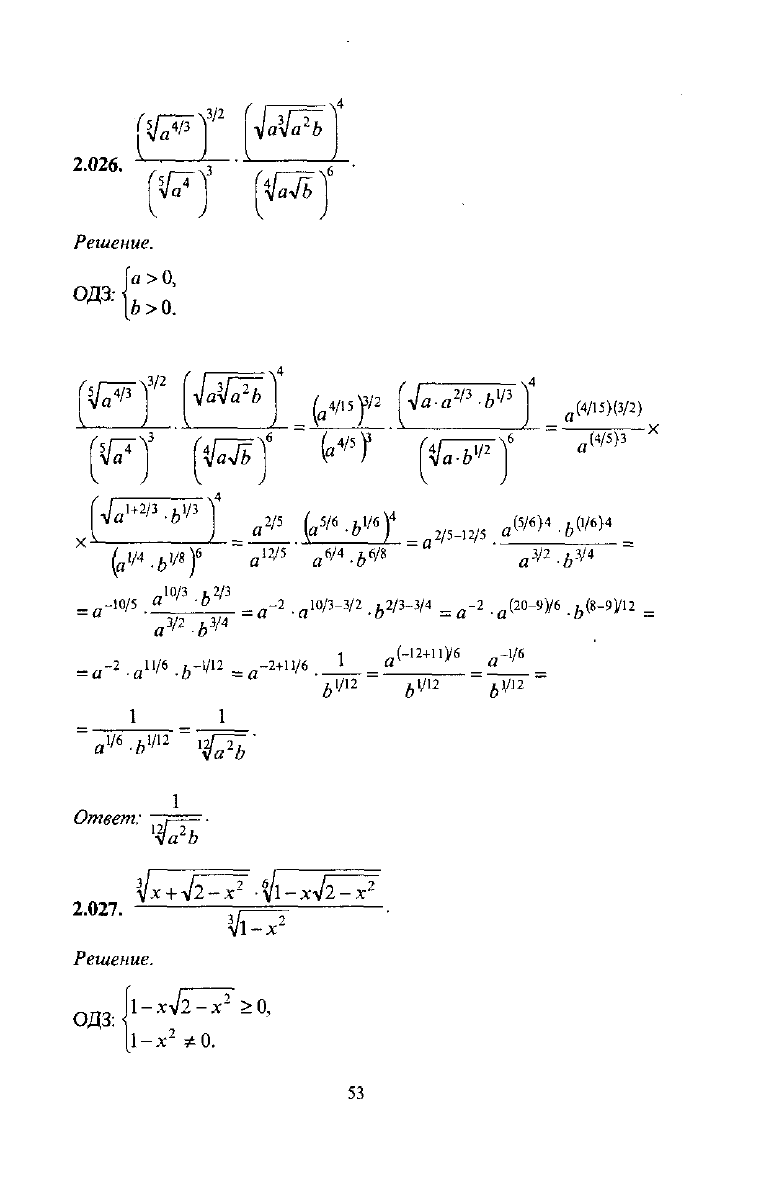 2.026. \frac{\left(\sqrt[5]{a^{4/3}}\right)^{3/2}}{\left(\sqrt[5]{a^4}\right)^3} \cdot \frac{\left(\sqrt{a\sqrt[3]{a^2b}}\right)^4}{\left(\sqrt[4]{a\sqrt{b}}\right)^6}.
Решение.
ОДЗ: \begin{cases} a > 0, \\ b > 0. \end{cases}
\frac{\left(\sqrt[5]{a^{4/3}}\right)^{3/2}}{\left(\sqrt[5]{a^4}\right)^3} \cdot \frac{\left(\sqrt{a\sqrt[3]{a^2b}}\right)^4}{\left(\sqrt[4]{a\sqrt{b}}\right)^6} = \frac{\left(a^{4/15}\right)^{3/2}}{\left(a^{4/5}\right)^3} \cdot \frac{\left(\sqrt{a \cdot a^{2/3} \cdot b^{1/3}}\right)^4}{\left(\sqrt[4]{a \cdot b^{1/2}}\right)^6} = \frac{a^{(4/15)(3/2)}}{a^{(4/5)3}} ×
× \frac{\left(\sqrt{a^{1+2/3} \cdot b^{1/3}}\right)^4}{\left(a^{1/4} \cdot b^{1/8}\right)^6} = \frac{a^{2/5}}{a^{12/5}} \cdot \frac{\left(a^{5/6} \cdot b^{1/6}\right)^4}{a^{6/4} \cdot b^{6/8}} = a^{2/5-12/5} \cdot \frac{a^{(5/6)·4} \cdot b^{(1/6)·4}}{a^{3/2} \cdot b^{3/4}} =
= a^{-10/5} \cdot \frac{a^{10/3} \cdot b^{2/3}}{a^{3/2} \cdot b^{3/4}} = a^{-2} \cdot a^{10/3-3/2} \cdot b^{2/3-3/4} = a^{-2} \cdot a^{(20-9)/6} \cdot b^{(8-9)/12} =
= a^{-2} \cdot a^{11/6} \cdot b^{-1/12} = a^{-2+11/6} \cdot \frac{1}{b^{1/12}} = \frac{a^{(-12+11)/6}}{b^{1/12}} = \frac{a^{-1/6}}{b^{1/12}} =
= \frac{1}{a^{1/6} \cdot b^{1/12}} = \frac{1}{\sqrt[12]{a^2b}}.
Ответ: \frac{1}{\sqrt[12]{a^2b}}.
2.027. \frac{\sqrt[3]{x+\sqrt{2-x^2}} \cdot \sqrt[6]{1-x\sqrt{2-x^2}}}{\sqrt[3]{1-x^2}}.
Решение.
ОДЗ: \begin{cases} 1-x\sqrt{2-x^2} \ge 0, \\ 1-x^2 \ne 0. \end{cases}
53